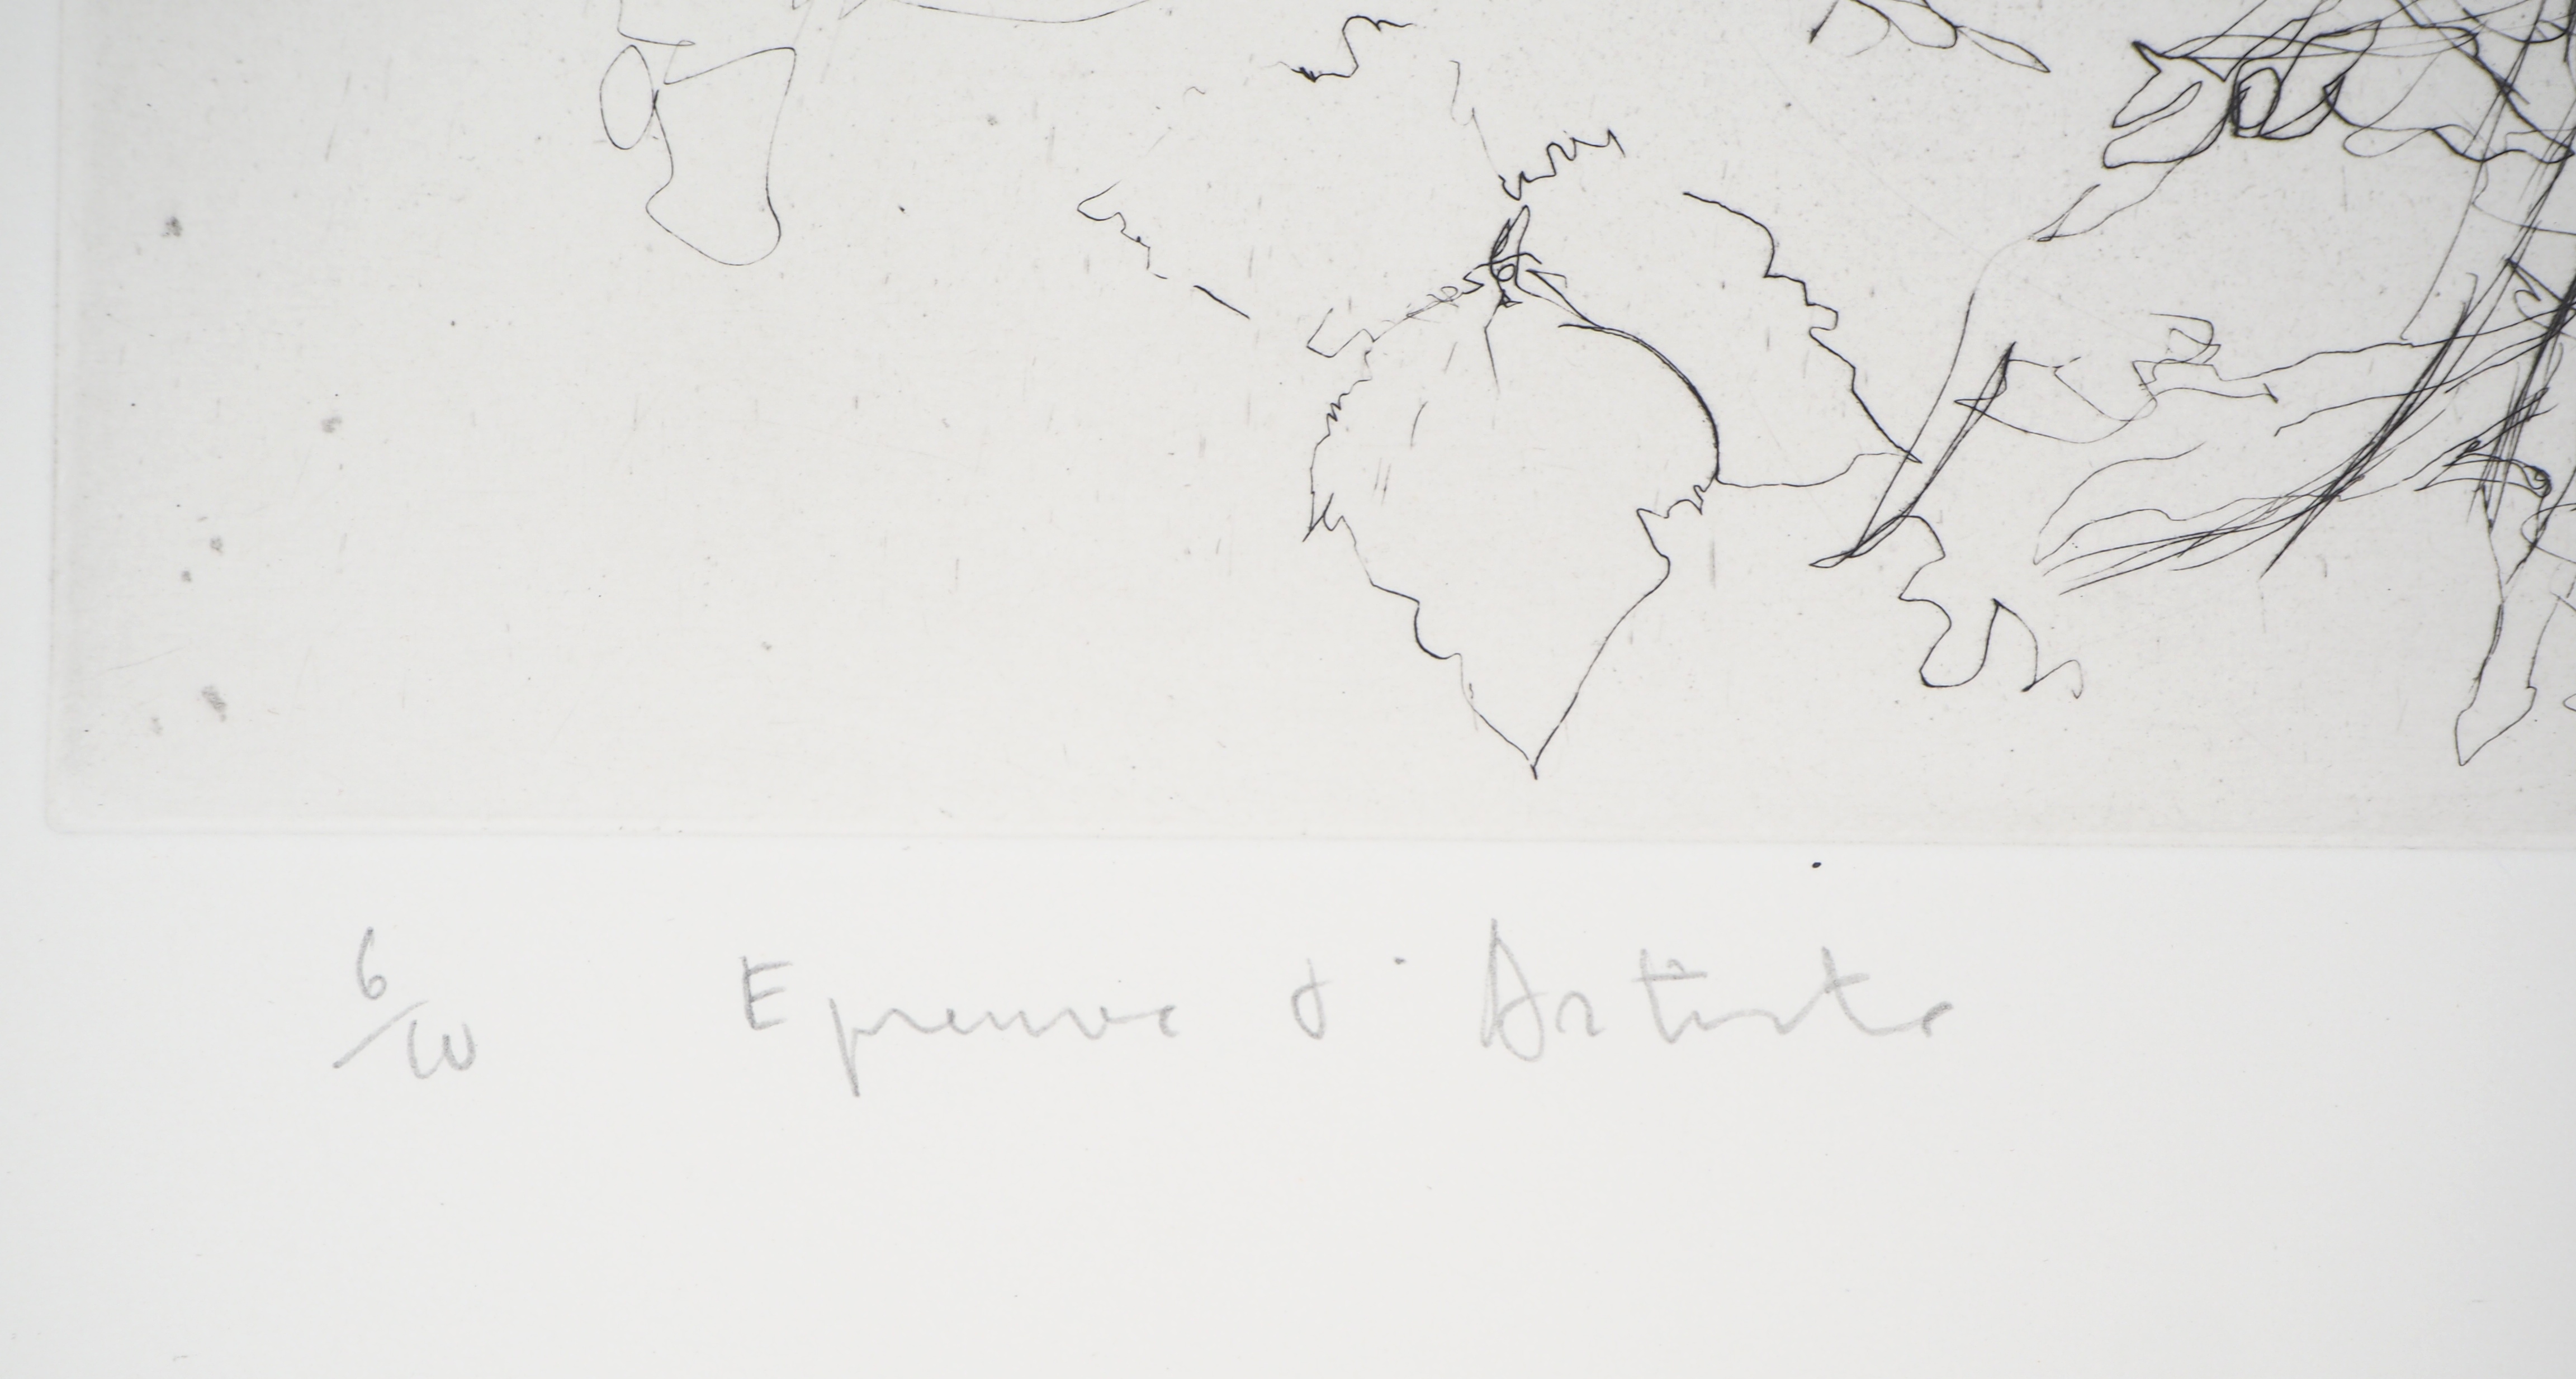 6/10 Epreuve d'Artiste